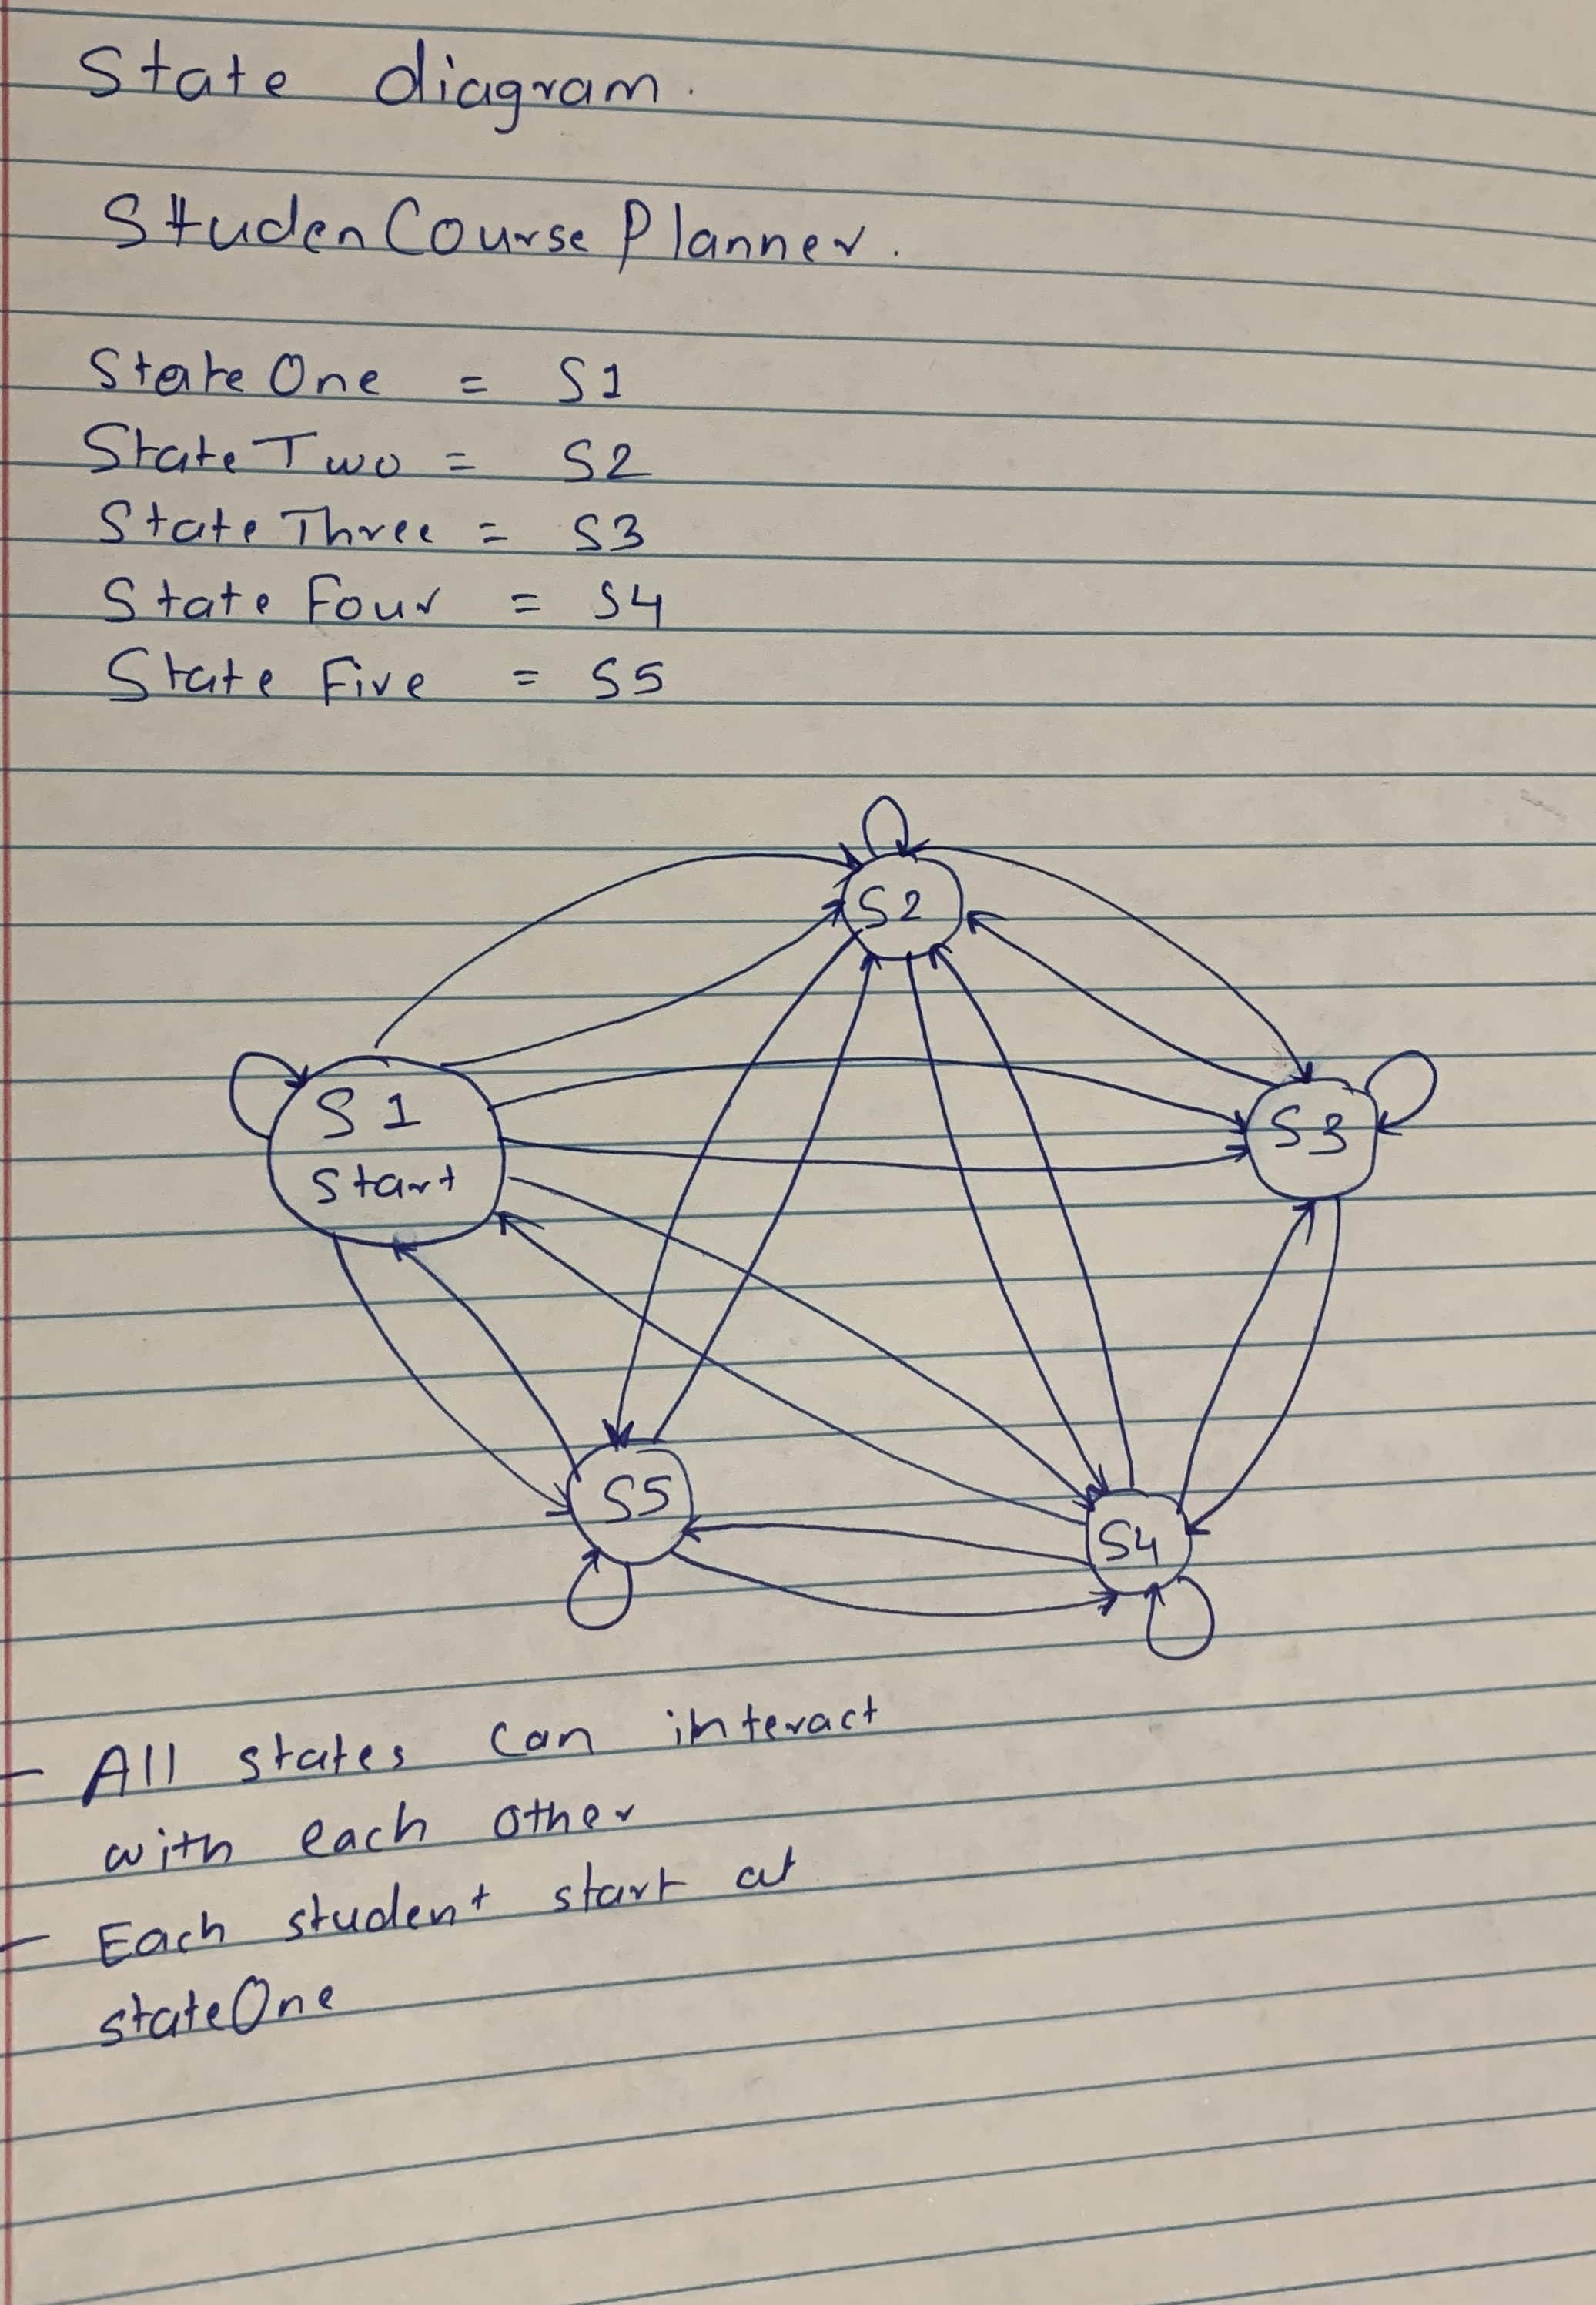 State diagram.
StudenCoursePlanner.
StateOne = S1
StateTwo = S2
StateThree = S3
State Four = S4
State Five = S5
S2
S1
Start
S3
S5
S4
- All states can interact
with each other
- Each student start at
stateOne